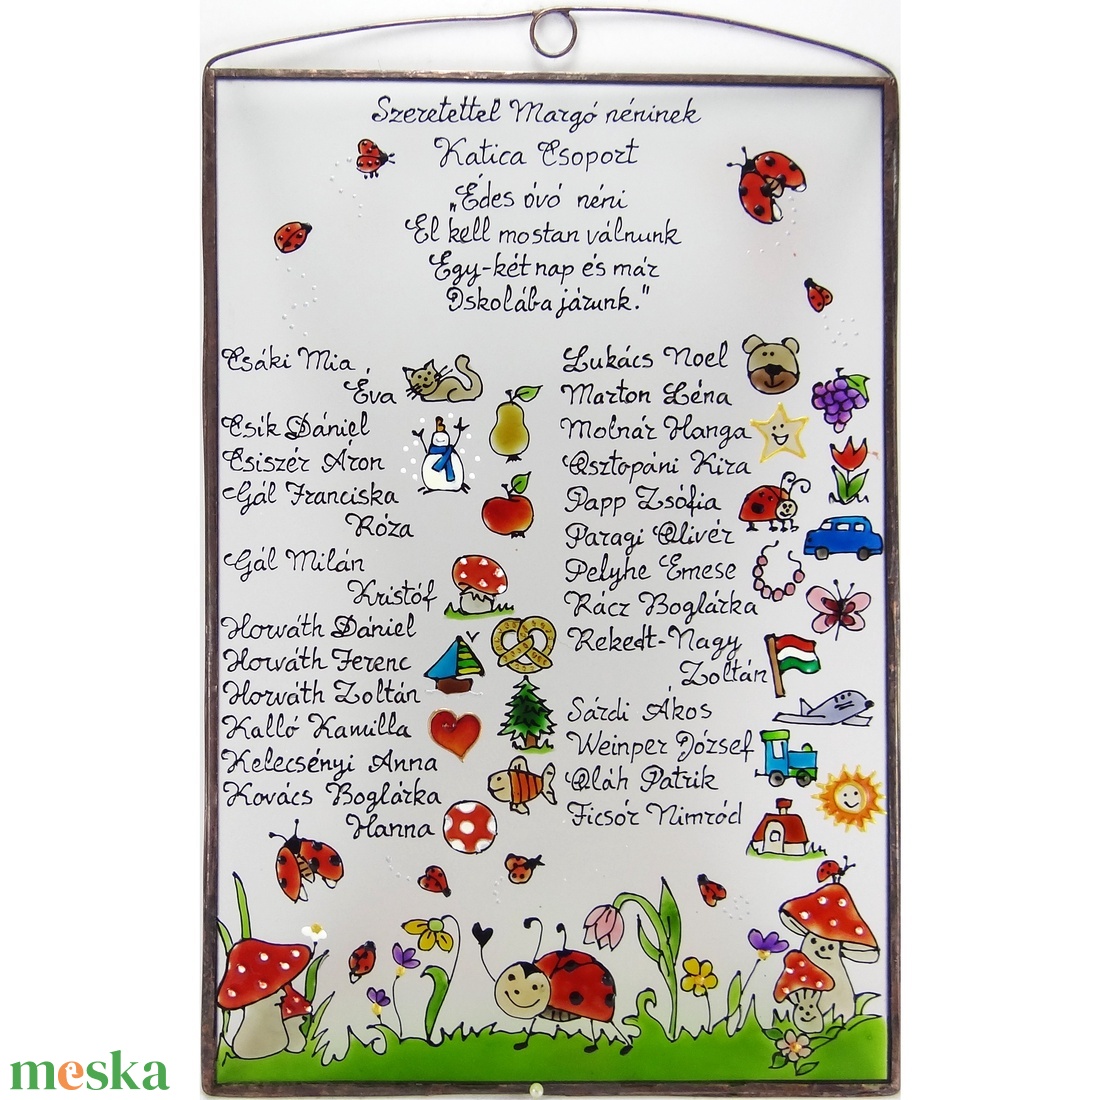 Szeretettel Margó néninek
Katica Csoport
„Édes óvó néni
El kell mostan válnunk
Egy-két nap és már
Iskolába járunk."
Csáki Mia
Éva
Csik Dániel
Csiszér Áron
Gál Franciska
Róza
Gál Milán
Kristóf
Horváth Dániel
Horváth Ferenc
Horváth Zoltán
Kalló Kamilla
Kelecsényi Anna
Kovács Boglárka
Hanna
Lukács Noel
Marton Léna
Molnár Hanga
Osztopáni Kira
Papp Zsófia
Paragi Olivér
Pelyhe Emese
Rácz Boglárka
Rekedt-Nagy
Zoltán
Sárdi Ákos
Weinper József
Oláh Patrik
Ficsór Nimród
meska